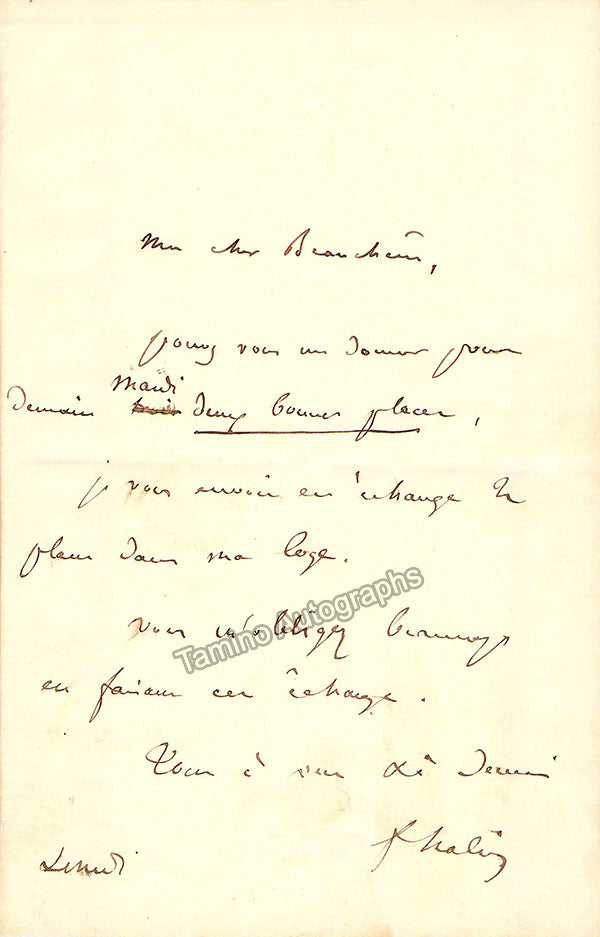 Mon cher Beauchêne,
pouvez vous me donner pour
Mardi
demain deux bonnes places,
je vous envoie en échange 2
places dans ma loge.
vous m'obligez beaucoup
en faisant cet échange.
Tout à vous à demain
fhalévy
Lundi
Tamino Autographs